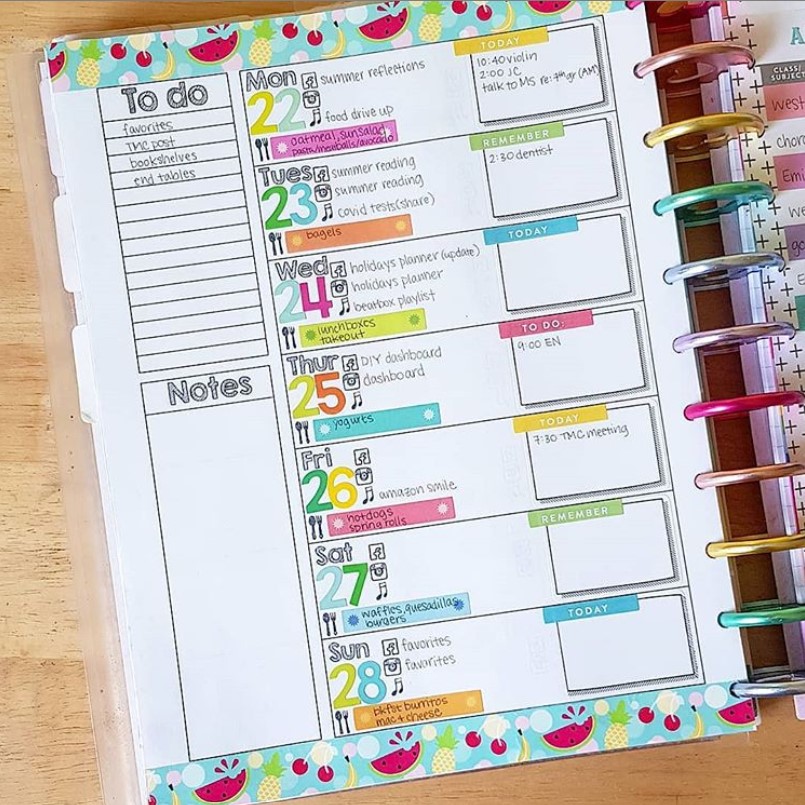 To do
favorites
TMC post
bookshelves
end tables
Notes
Mon
22
summer reflections
food drive up
oatmeal, sun salad
pasta/meatballs/avocado
TODAY
10:40 violin
2:00 JC
talk to MS re: (AM)
Tues
23
summer reading
summer reading
covid tests (share)
bagels
REMEMBER
2:30 dentist
Wed
24
holidays planner (update)
holidays planner
beatbox playlist
lunchboxes
takeout
TODAY
Thur
25
DIY dashboard
dashboard
yogurts
TO DO:
9:00 EN
Fri
26
amazon smile
hotdogs
spring rolls
TODAY
7:30 TMC meeting
Sat
27
waffles, quesadillas
burgers
REMEMBER
Sun
28
favorites
favorites
bkfst burritos
mac + cheese
TODAY
A
CLASS/
SUBJECT
West
chor
Emi
we
go